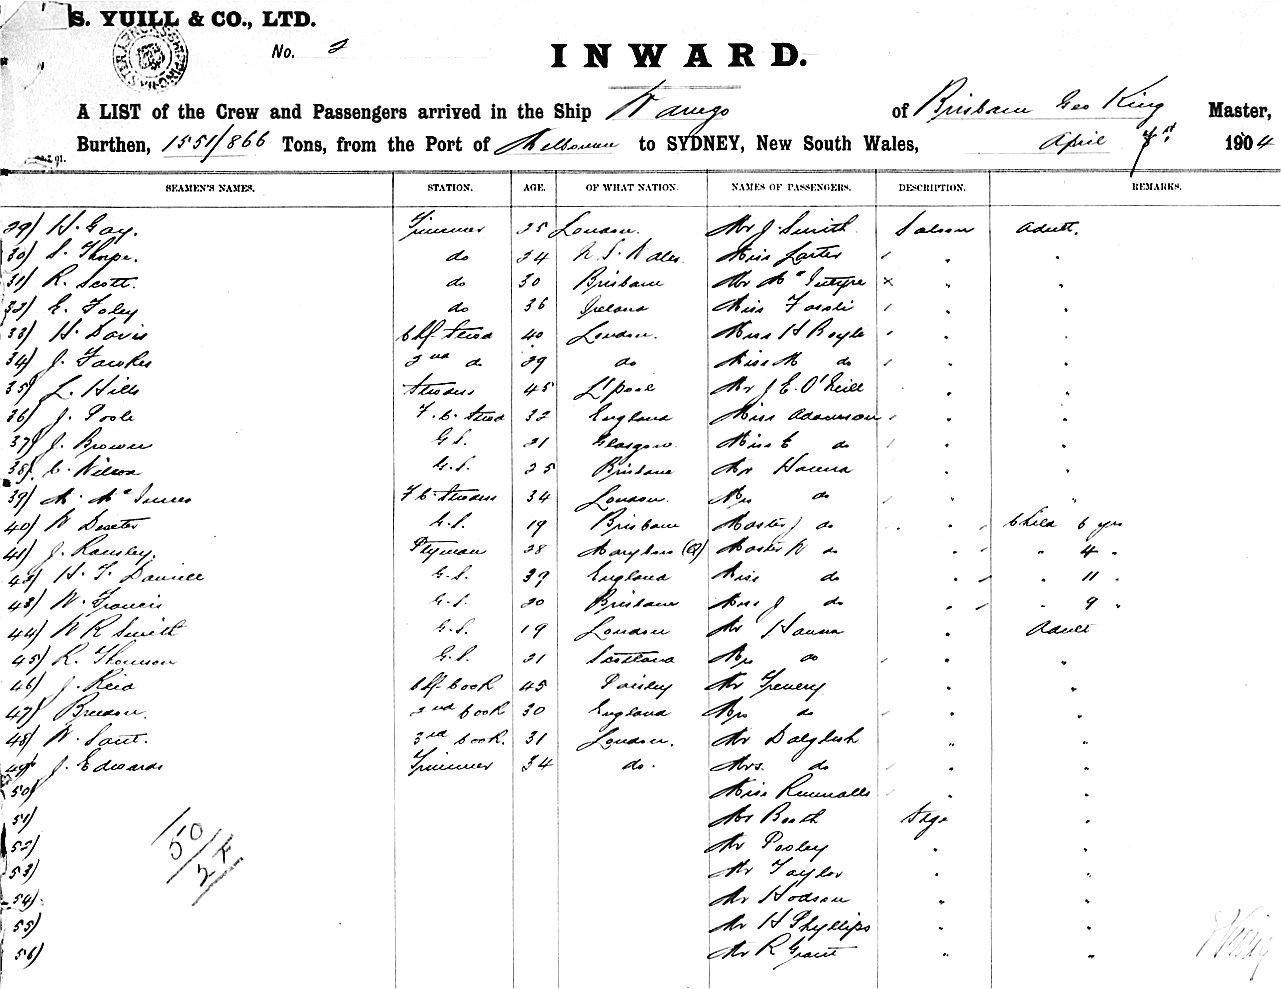 S. YUILL & CO., LTD.
No. 2
INWARD.
A LIST of the Crew and Passengers arrived in the Ship Warrego of Brisbane Geo King Master,
Burthen, 1551/866 Tons, from the Port of Melbourne to SYDNEY, New South Wales, April 7st 1904
SEAMEN'S NAMES. STATION. AGE. OF WHAT NATION. NAMES OF PASSENGERS. DESCRIPTION. REMARKS.
29) H. Gay. Trimmer 25 London. Mr J. Smith Saloon Adult.
30) S. Thorpe. do 24 N. S. Wales Miss Carter " "
31) R. Scott. do 30 Brisbane Mr McIntyre x " "
32) E. Foley do 36 Ireland Miss " "
33) H. Davis Chf Stewd 40 London. Miss H Boyle " "
34) J. Fawkes 2nd do 29 do Miss M do " "
35) L. Hills Stewdss 45 L'pool Mr J E. O'Neill " "
36) J. Poole F. C. Stewd 32 England Miss Adamson " "
37) J. Brown G.S. 21 Glasgow. Miss E do " "
38) C. Wilson G.S. 25 Brisbane Mr Hanna " "
39) M. McInnes F C Stewdss 34 London. Mrs do " "
40) W Dexter G.S. 19 Brisbane Master J do " Child 6 yrs
41) J. Ramsley. Ptyman 28 Maryboro (Q) Master W do " " 4 "
42) H. T. G.S. 39 England Miss do " " 11 "
43) W. Francis G.S. 20 Brisbane Miss J do " " 9 "
44) W R Smith G.S. 19 London Mr Hanna " Adult
45) R. Thomson G.S. 21 Scotland Mrs do " "
46) J. Reid Chf Cook 45 Paisley Mr " "
47) Breedon. 2nd Cook 30 England Mrs do " "
48) W. Sant. 3rd Cook. 31 London. Mr Dalglish " "
49) J. Edwards Trimmer 34 do. Mrs. do " "
50) Miss Runnalls " "
51) Mr Booth Stge "
52) Mr Pooley " "
53) Mr Taylor " "
54) Mr Hodson " "
55) Mr H Phyllips " "
56) Mr R Grant " "
50
2 F